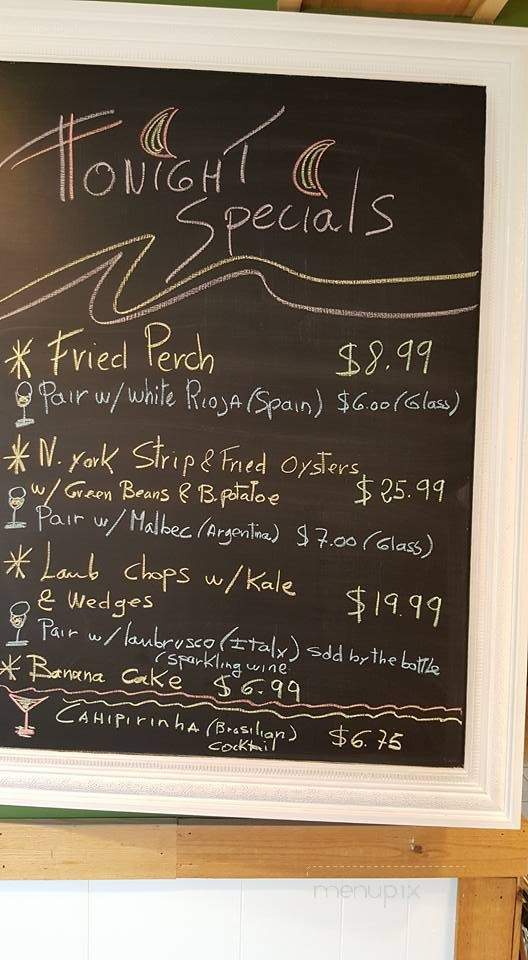 TONIGHT
Specials
* Fried Perch $8.99
Pair w/ white RIOJA (Spain) $6.00 (Glass)
* N. York Strip & Fried Oysters
w/ Green Beans & B.potatoe $25.99
Pair w/ Malbec (Argentina) $7.00 (Glass)
* Lamb Chops w/ Kale
& Wedges $19.99
Pair w/ lambrusco (Italy) sold by the bottle
(sparkling wine
* Banana Cake $6.99
CAHIPIRINHA (Brasilian) $6.75
cocktail
menupix